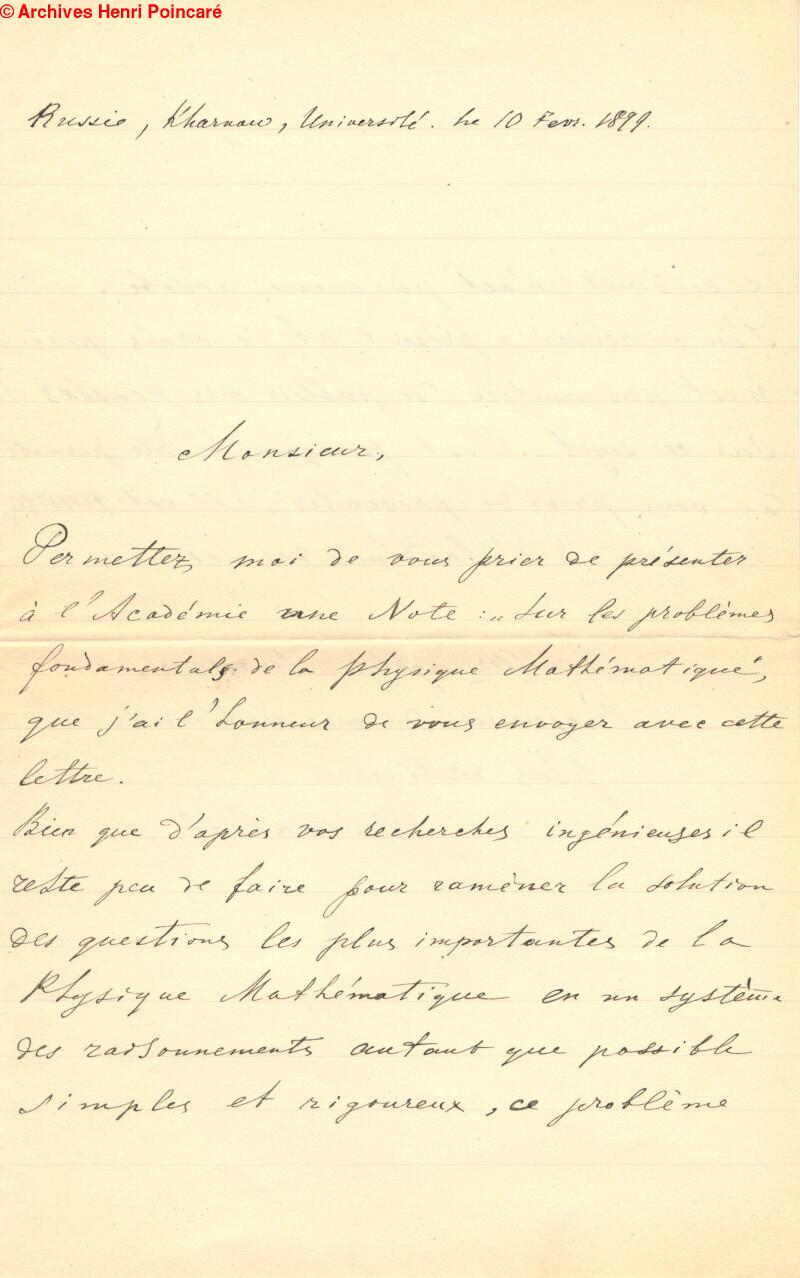 © Archives Henri Poincaré
Russie, Kharkow, Université. Le 10 Fevr. 1899.
Monsieur,
Permettez moi de vous prier de présenter
à l'Académie une Note: „Sur les problèmes
fondamentals de la Physique Mathématique",
que j'ai l'honneur de vous envoyer avec cette
lettre.
Bien que d'après vos recherches ingénieuses il
reste peu de faire pour ramèner la solution
des questions les plus importantes de la
Physique Mathématique en un système
des raisonnements autant que possible
simples et rigoureux, ce problème